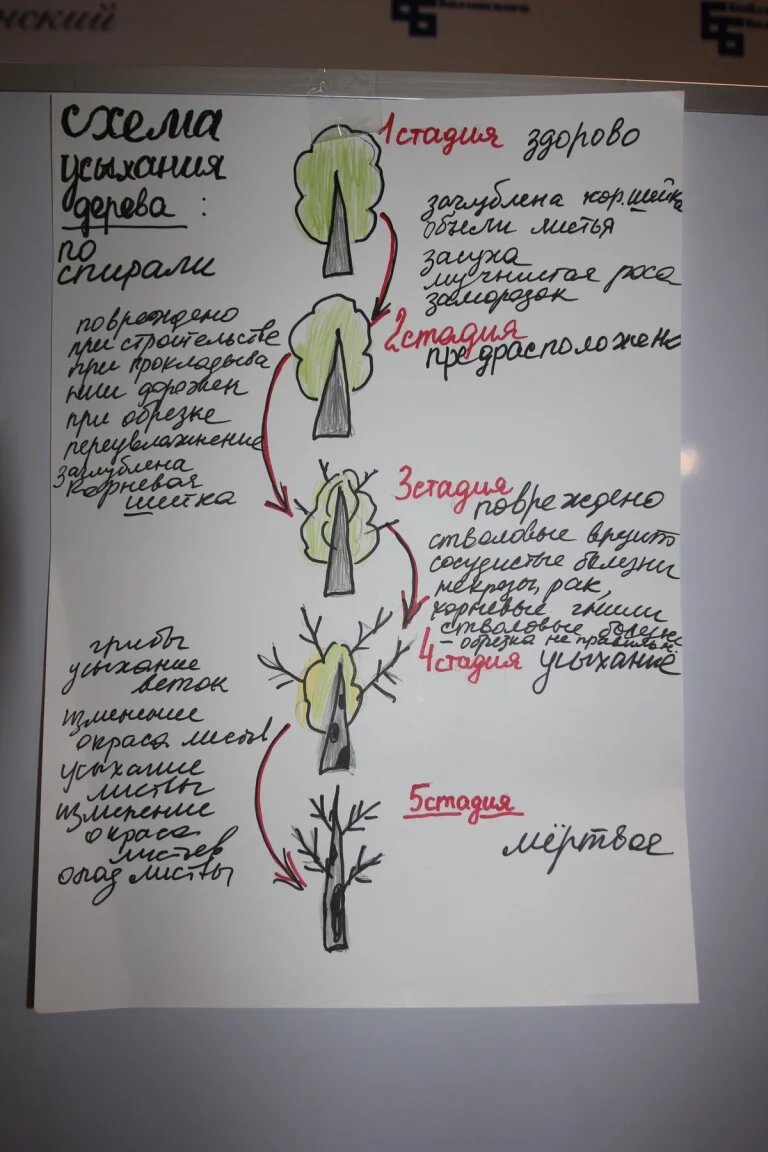 нский
Белинского
схема
усыхания
дерева :
по
спирали
1 стадия здорово
заглублена кор. шейка
объели листья
засуха
мучнистая роса
заморозок
2 стадия
предрасположено
повреждено
при строительстве
при прокладыва
нии дорожек
при обрезке
переувлажнение
заглублена
корневая
шейка
3 стадия
повреждено
стволовые вредит
сосудистые болезни
некрозы, рак,
корневые гнили
стволовые болезн
- обрезка не правильн
4 стадия усыхание
грибы
усыхание
веток
изменение
окраса листьев
усыхание
листвы
изменение
окраса
листьев
опад листвы
5 стадия
мёртвое